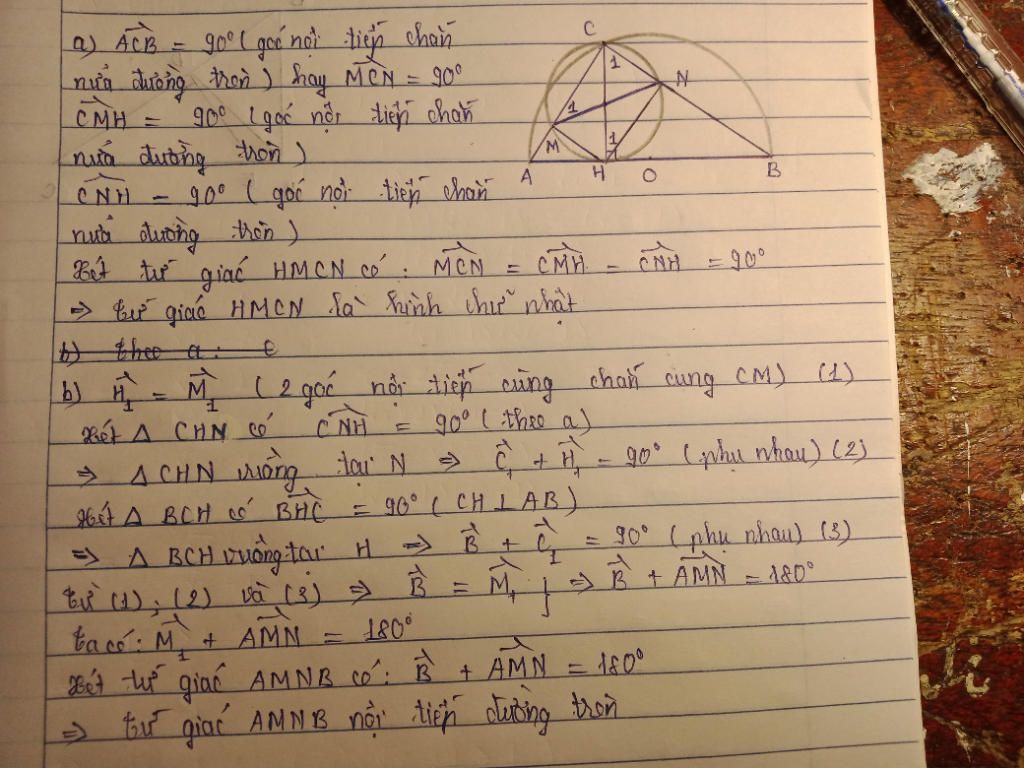 a) ACB = 90° (góc nội tiếp chắn
nửa đường tròn) hay MCN = 90°
CMH = 90° (góc nội tiếp chắn
nửa đường tròn)
CNH = 90° (góc nội tiếp chắn
nửa đường tròn)
Xét tứ giác HMCN có: MCN = CMH = CNH = 90°
⇒ tứ giác HMCN là hình chữ nhật
b) theo a:
b) H₁ = M₁ (2 góc nội tiếp cùng chắn cung CM) (1)
Xét Δ CHN có CNH = 90° (theo a)
⇒ Δ CHN vuông tại N ⇒ C₁ + H₁ = 90° (phụ nhau) (2)
Xét Δ BCH có BHC = 90° (CH ⊥ AB)
⇒ Δ BCH vuông tại H ⇒ B + C₁ = 90° (phụ nhau) (3)
từ (1); (2) và (3) ⇒ B = M₁ } ⇒ B + AMN = 180°
ta có: M₁ + AMN = 180°
Xét tứ giác AMNB có: B + AMN = 180°
⇒ tứ giác AMNB nội tiếp đường tròn
C
1
N
1
M
1
A
H
O
B